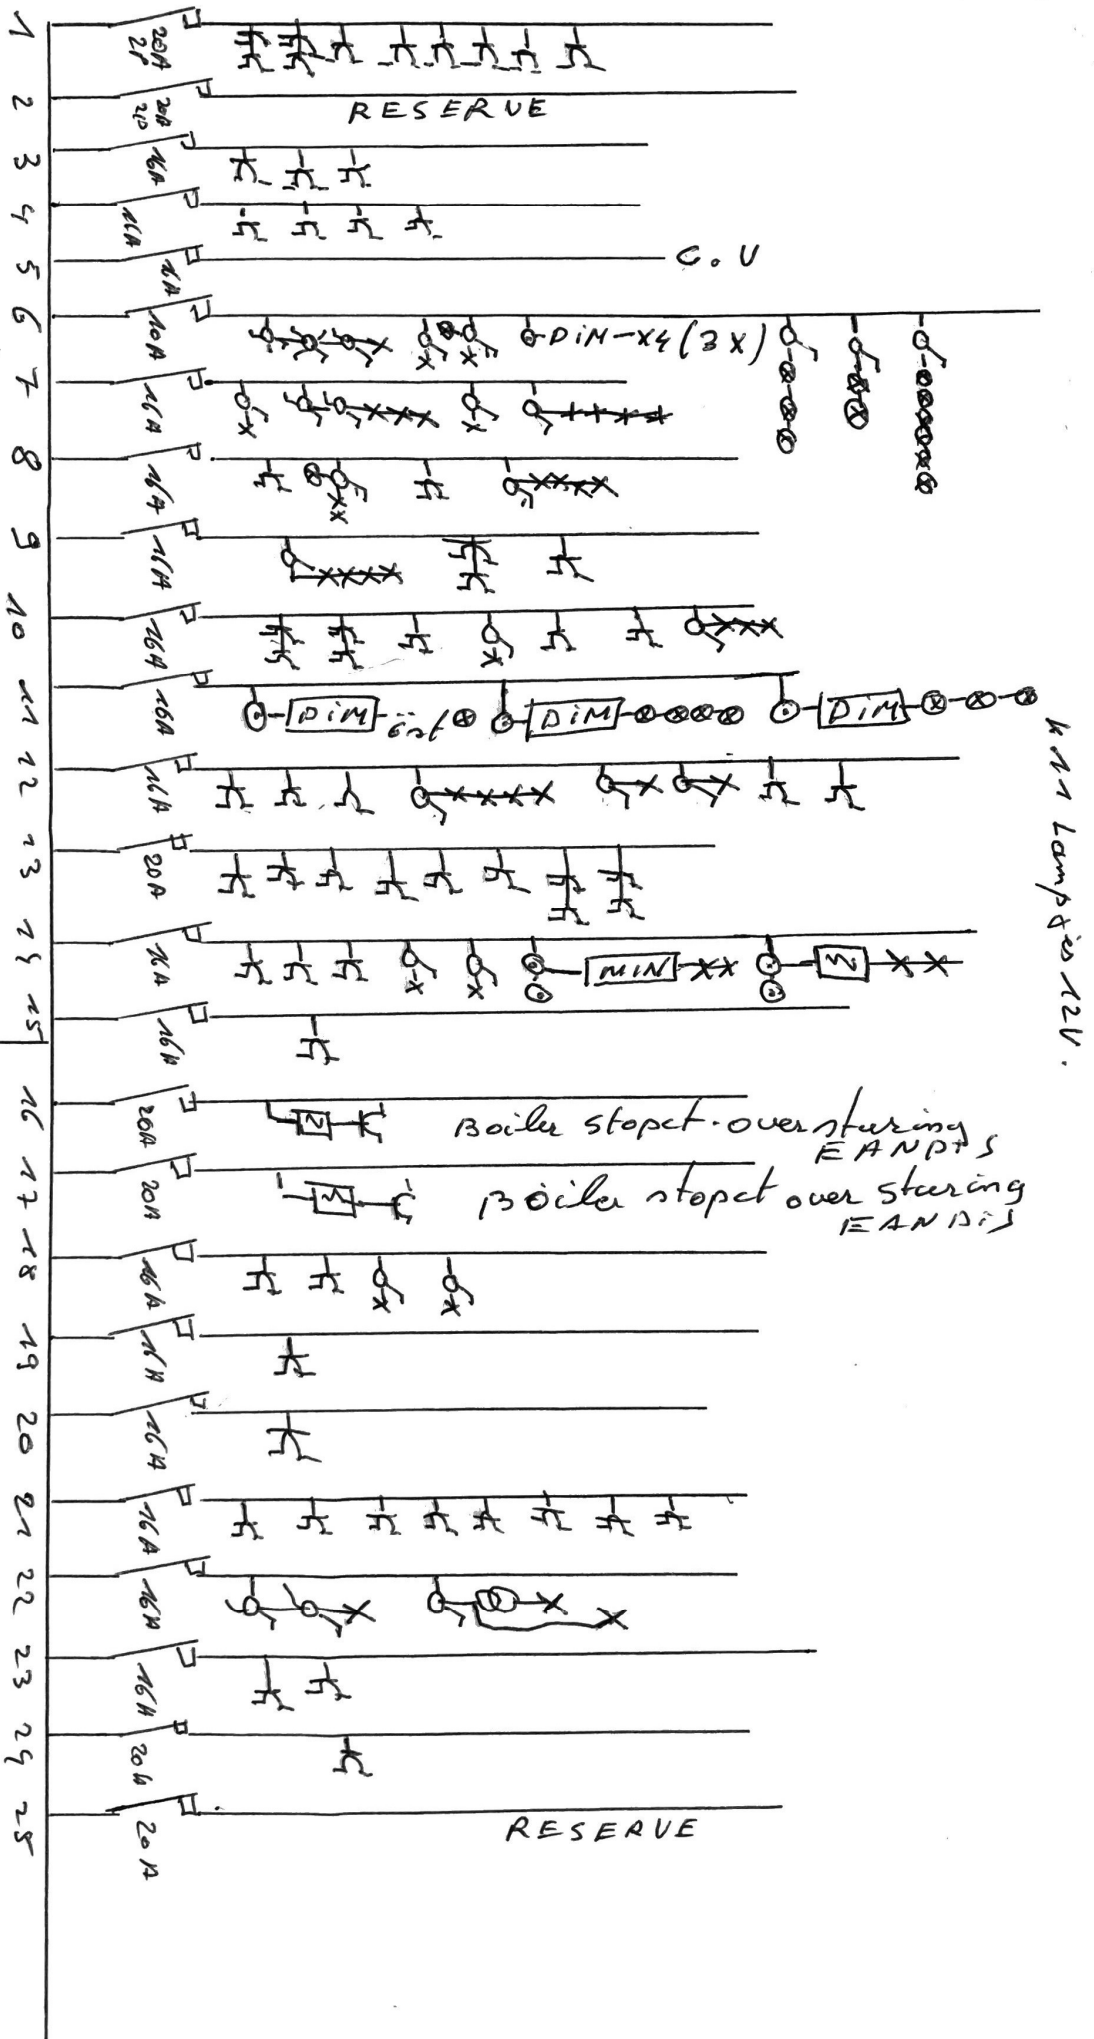 1 20A 2P
2 20A 2P RESERVE
3 16A
4 16A
5 16A C.V
6 10A DiM-X4 (3X)
7 16A
8 16A
9 16A
10 16A
11 16A DiM DiM DiM
12 16A
13 20A
14 16A MIN
15 16A
16 20A Boiler stopct. oversturing
EANDIS
17 20A Boiler stopct over sturing
EANDiS
18 16A
19 16A
20 16A
21 16A
22 16A
23 16A
24 20A
25 20A RESERVE
K11 Lampjes 12V.